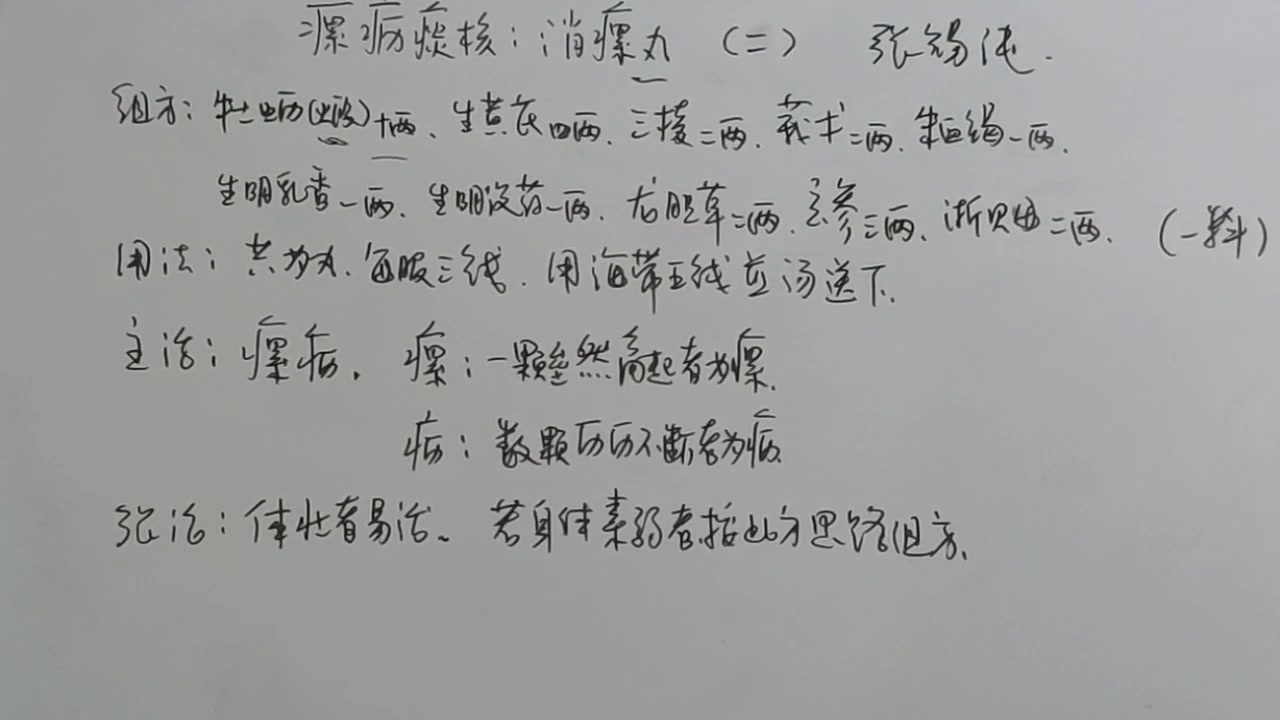 瘰疬痰核：消瘰丸（二） 张锡纯.
组方：牡蛎(煅)十两、生黄芪四两、三棱二两、莪术二两、朱血竭一两、
生明乳香一两、生明没药一两、龙胆草二两、玄参三两、浙贝母二两. (一料)
用法：共为丸、每服三钱、用海带五钱 汤送下.
主治：瘰疬. 瘰：一颗垒然高起者为瘰.
疬：数颗历历不断者为疬.
张治：体壮者易治. 若身体素弱者按此方思路组方.